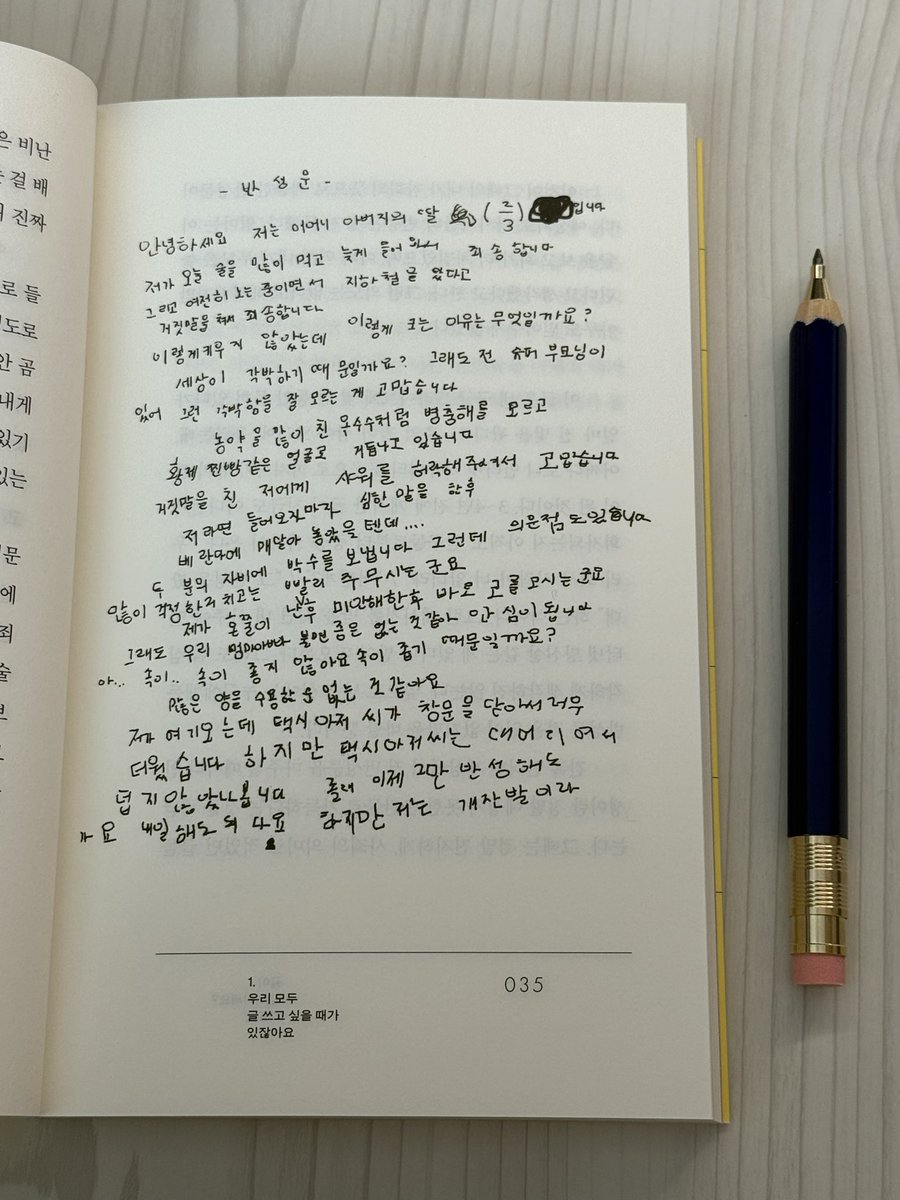 은 비난
는 걸 배
진짜
로 들
도로
안 곰
내게
있기
있는
문
에
죄
술
- 반성문 -
안녕하세요 저는 어머니 아버지의 딸 (2/3) 입니다
저가 오늘 술을 많이 먹고 늦게 들어와서 죄송합니다
그리고 여전히 노는 중이면서 지하철을 탔다고
거짓말을 쳐서 죄송합니다
이렇게 키우지 않았는데 이렇게 크는 이유는 무엇일까요?
세상이 각박하기 때문일까요? 그래도 전 슈퍼 부모님이
있어 그런 각박함을 잘 모르는 게 고맙습니다
농약을 많이 친 옥수수처럼 병충해를 모르고
황제 찐빵같은 얼굴로 거듭나고 있습니다
거짓말을 친 저에게 샤워를 허락해주셔서 고맙습니다
저라면 들어오자마자 심한 말을 한후
베란다에 매달아 놓았을 텐데....
두 분의 자비에 박수를 보냅니다 그런데 의문점도있습니다
많이 걱정한거 치고는 빨리 주무시는군요
제가 혼쭐이 난후 미안해한후 바로 코를 고시는군요
그래도 우리 엄마아빠가 불면증은 없는 것같아 안심이 됩니다
아... 속이.. 속이 좋지 않아요 속이 좁기 때문일까요?
많은 양을 수용할 순 없는 것 같아요
제가 여기오는데 택시아저씨가 창문을 닫아서 너무
더웠습니다 하지만 택시아저씨는 대머리여서
덥지 않았나봅니다 몰래 이제 그만 반성해도
가요 내일 해도 되 다요 하지만 저는 개잔발이라
1.
우리 모두
글 쓰고 싶을 때가
있잖아요
035